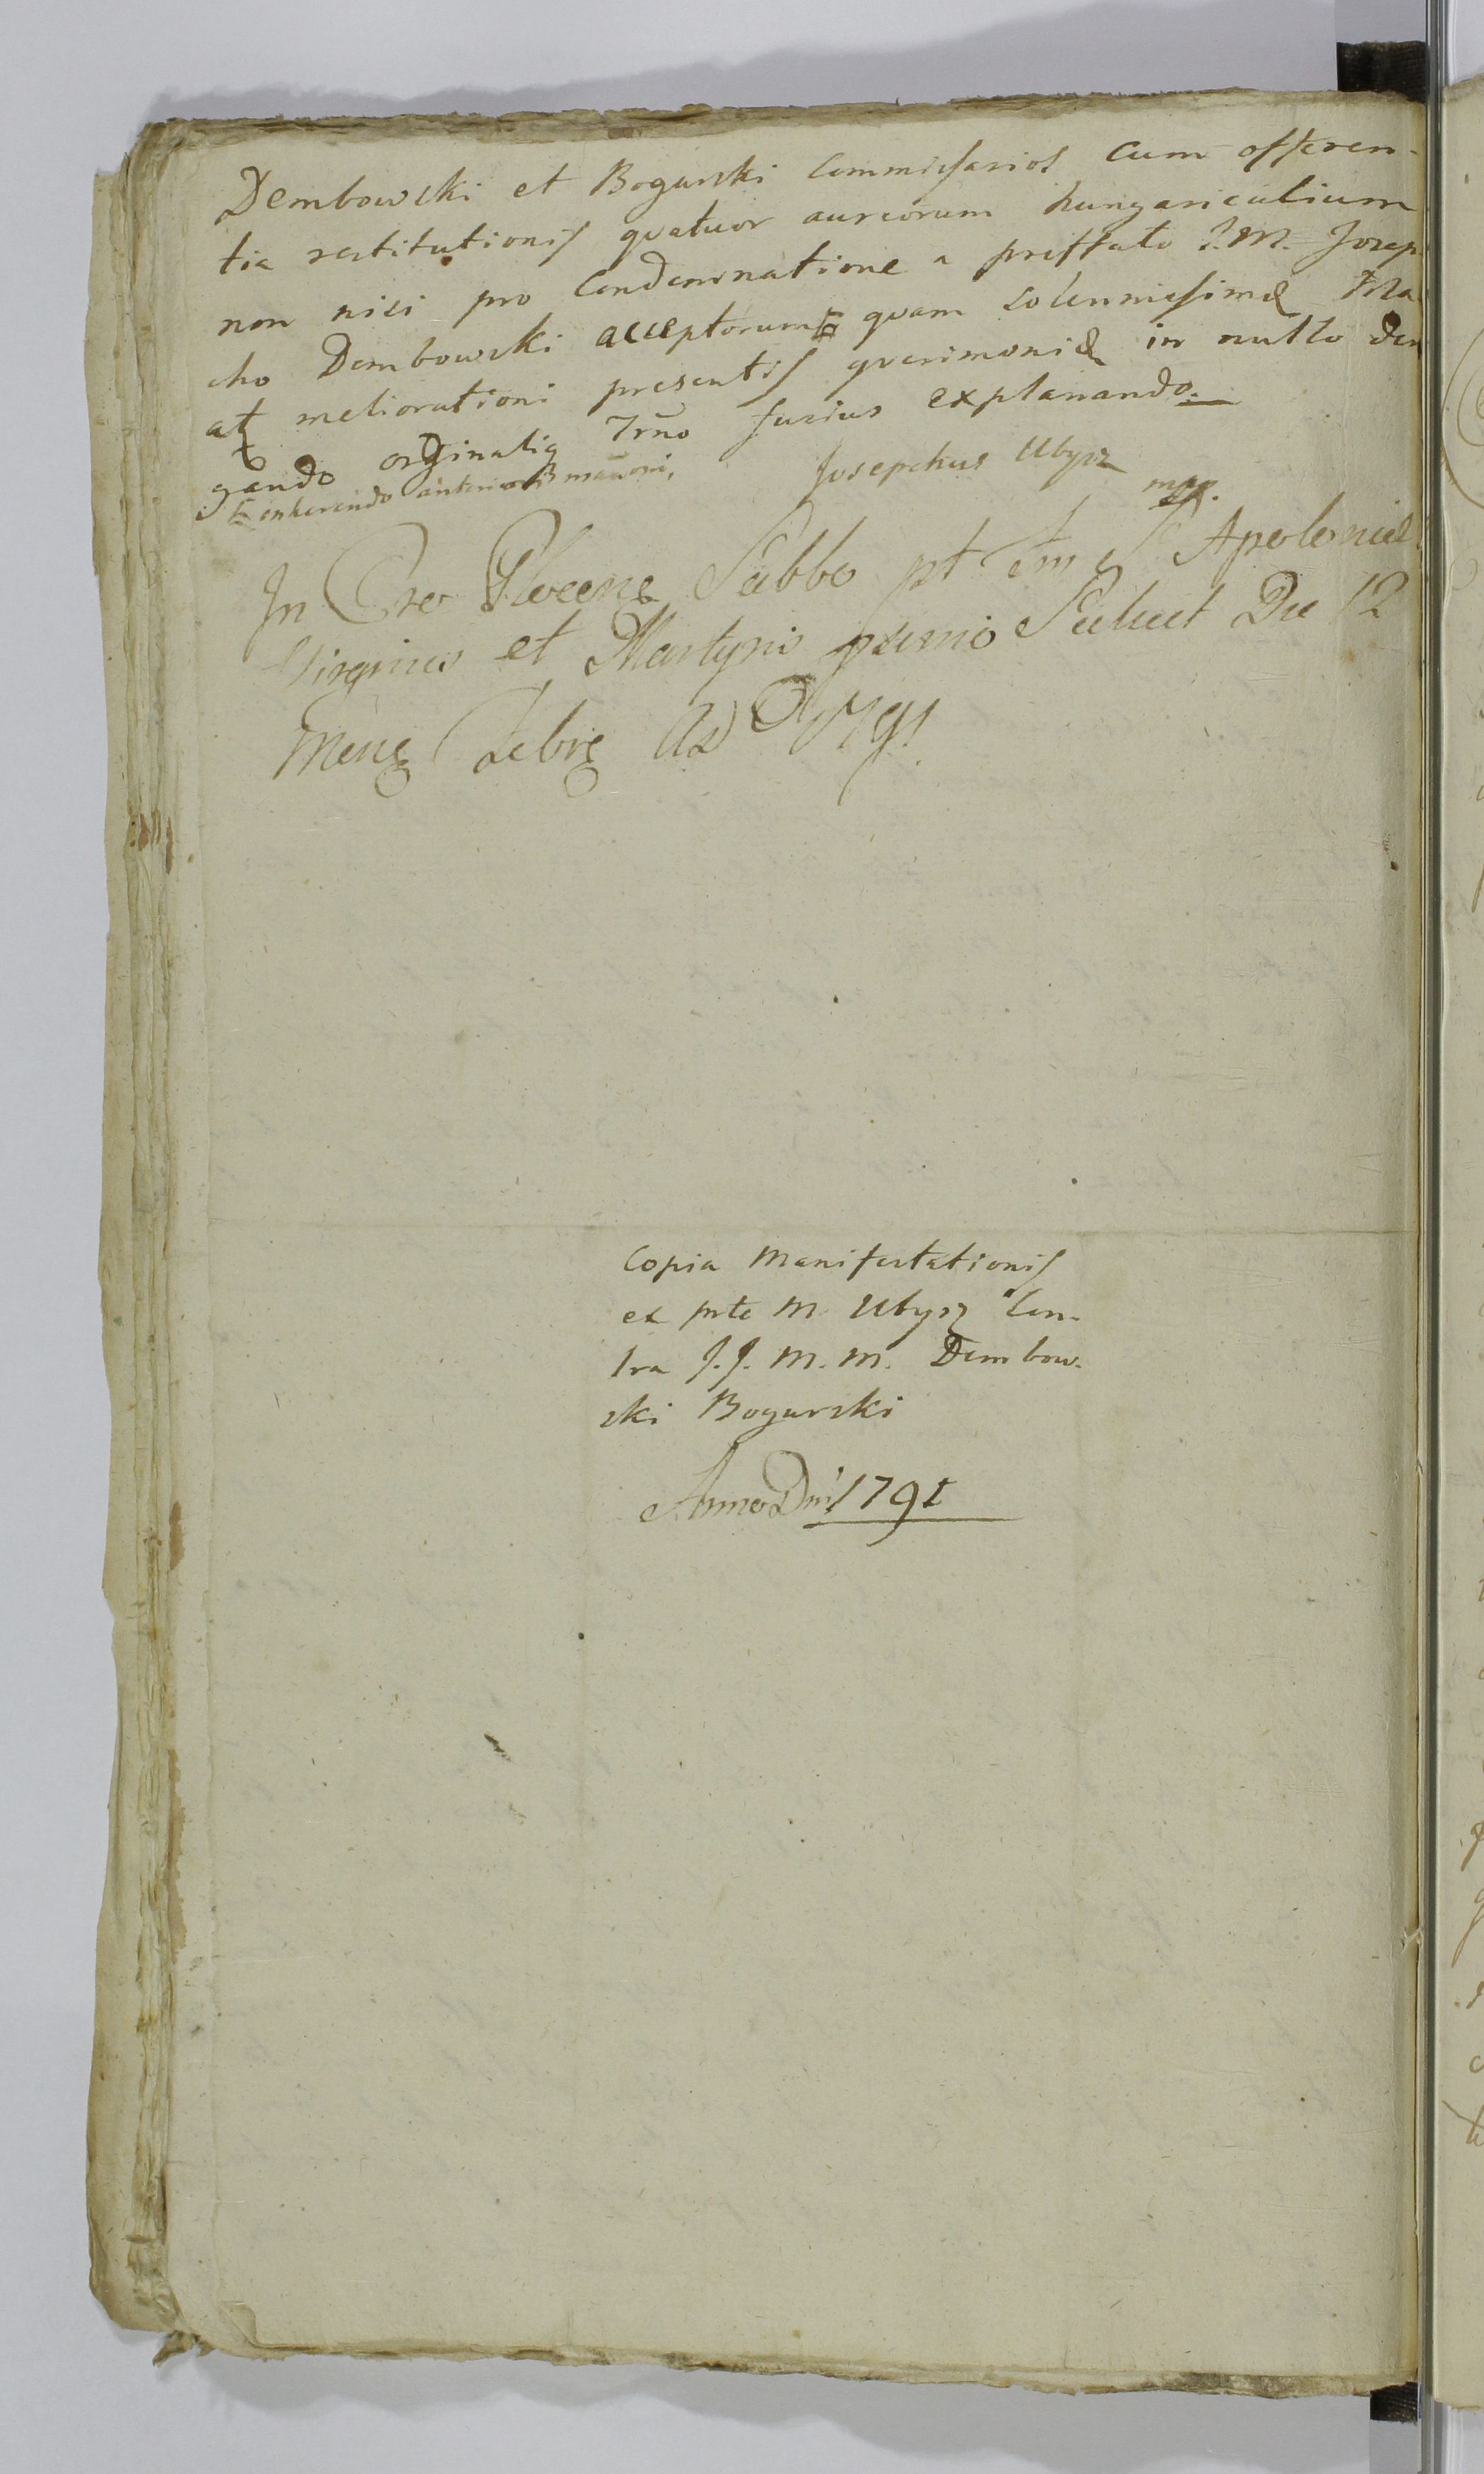 Dembowski et Bogurski Commissarios cum offeren-
tia restitutionis quatuor aureorum hungaricalium
non nisi pro Condemnatione a preffato J. M. Josep
cho Dembowski acceptorum quam solennissime Ma
at meliorationi presentis querimoniæ in nullo de
gando originaliq Trno fusius explanando.
inherendo anteriori manoni,
Josephus Ubysz mpp.
In Cro Plocens Sabbo pt Tm S Apoloniæ
Virginis et Martyris pximo Sciluet Die 12
Mens Febrs AD 1791
Copia Manifestationis
ex prte M. Ubysz Con-
tra J. J. M. M. Dembow-
ski Bogurski
Anno Dni 1791